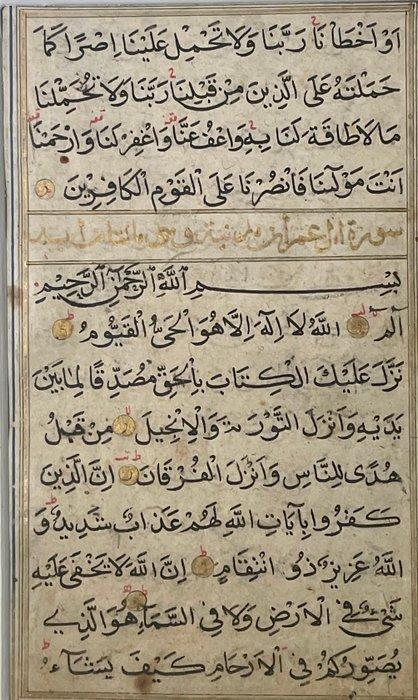 اَوْ اَخْطَأْنَا رَبَّنَا وَلَا تَحْمِلْ عَلَيْنَا اِصْرًا كَمَا
حَمَلْتَهُ عَلَى الَّذِينَ مِنْ قَبْلِنَا رَبَّنَا وَلَا تُحَمِّلْنَا
مَا لَا طَاقَةَ لَنَا بِهِ وَاعْفُ عَنَّا وَاغْفِرْ لَنَا وَارْحَمْنَا
اَنْتَ مَوْلٰينَا فَانْصُرْنَا عَلَى الْقَوْمِ الْكَافِرِينَ
سورة ال عمران مدنية وهى مائتا اية
بِسْمِ اللّٰهِ الرَّحْمٰنِ الرَّحِيمِ
الٓمٓ اَللّٰهُ لَا اِلٰهَ اِلَّا هُوَ الْحَىُّ الْقَيُّومُ
نَزَّلَ عَلَيْكَ الْكِتَابَ بِالْحَقِّ مُصَدِّقًا لِمَا بَيْنَ
يَدَيْهِ وَاَنْزَلَ التَّوْرٰيةَ وَالْاِنْجِيلَ مِنْ قَبْلُ
هُدًى لِلنَّاسِ وَاَنْزَلَ الْفُرْقَانَ اِنَّ الَّذِينَ
كَفَرُوا بِاٰيَاتِ اللّٰهِ لَهُمْ عَذَابٌ شَدِيدٌ وَ
اللّٰهُ عَزِيزٌ ذُو انْتِقَامٍ اِنَّ اللّٰهَ لَا يَخْفٰى عَلَيْهِ
شَىْءٌ فِى الْاَرْضِ وَلَا فِى السَّمَاءِ هُوَ الَّذِى
يُصَوِّرُكُمْ فِى الْاَرْحَامِ كَيْفَ يَشَاءُ